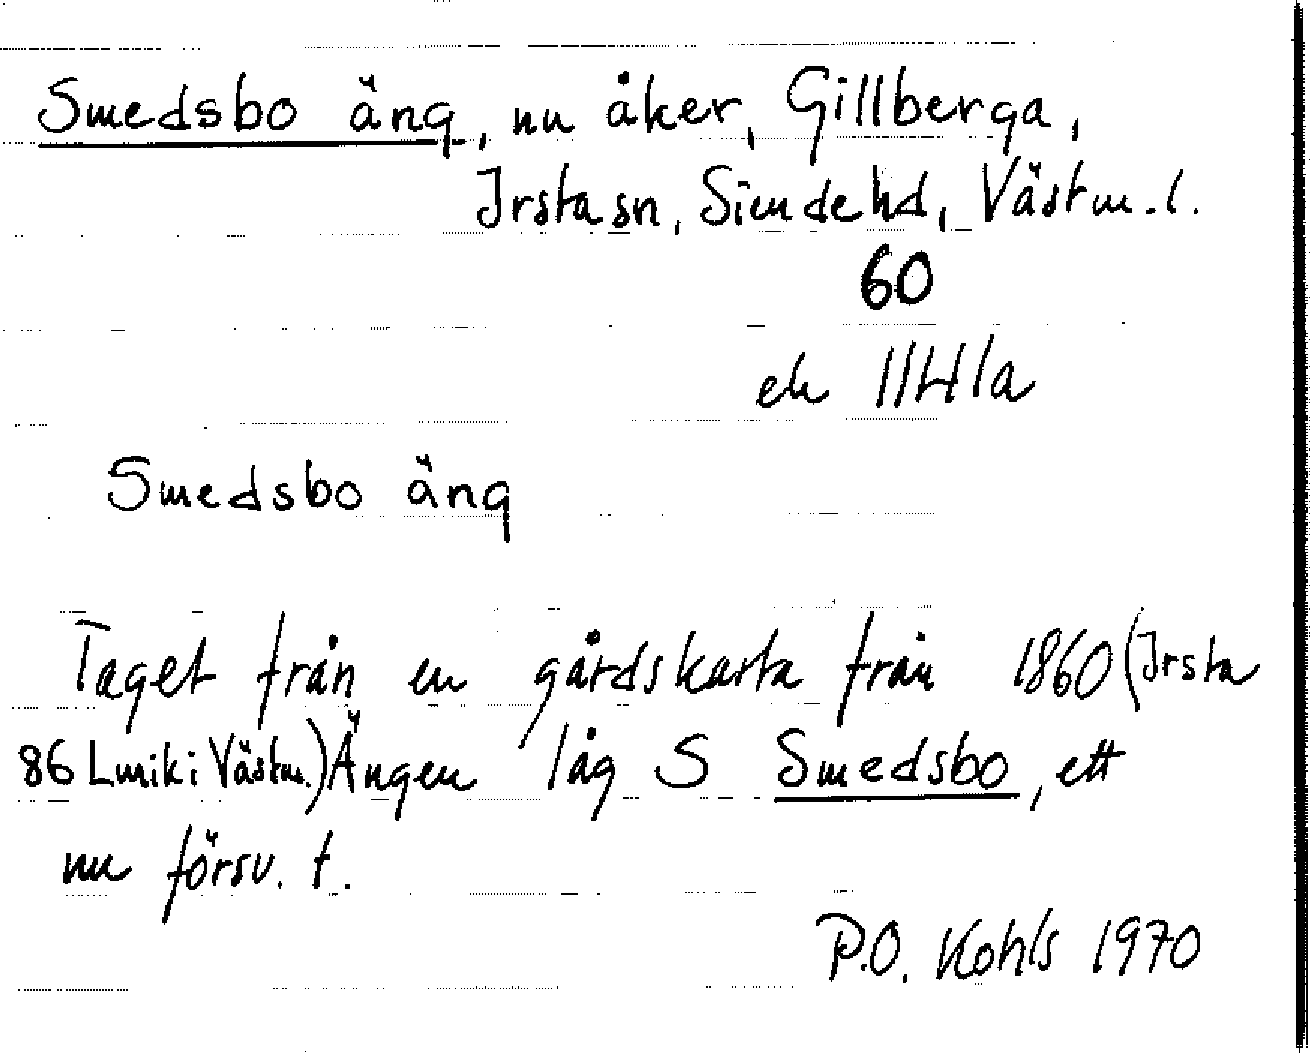 Smedsbo äng, nu åker, Gillberga,
Irsta sn, Siende hd, Västm. l.
60
ek 11H1a
Smedsbo äng
Taget från en gårdskarta från 1860 (Irsta
86 Lmik i Västm.) Ängen låg S Smedsbo, ett
nu försv. t.
P.O. Kohls 1970